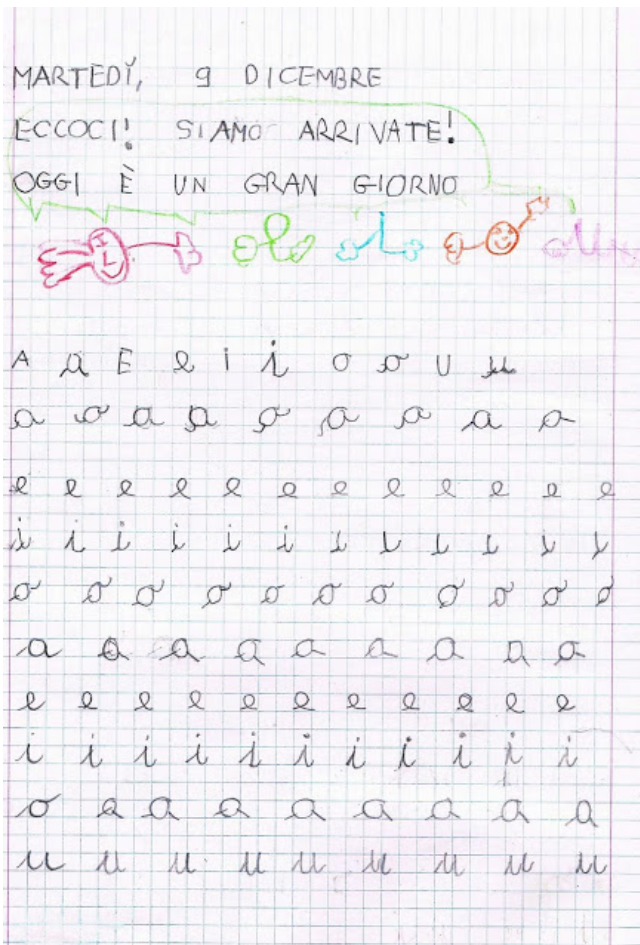 MARTEDÌ, 9 DICEMBRE
ECCOCI! SIAMO ARRIVATE!
OGGI È UN GRAN GIORNO
A a E e I i O o U u
a a a a a a a a a
e e e e e e e e e e e e
i i i i i i i i i i i i
o o o o o o o o o o o
a a a a a a a a a
e e e e e e e e e e e
i i i i i i i i i i i
o a a a a a a a a
u u u u u u u u u